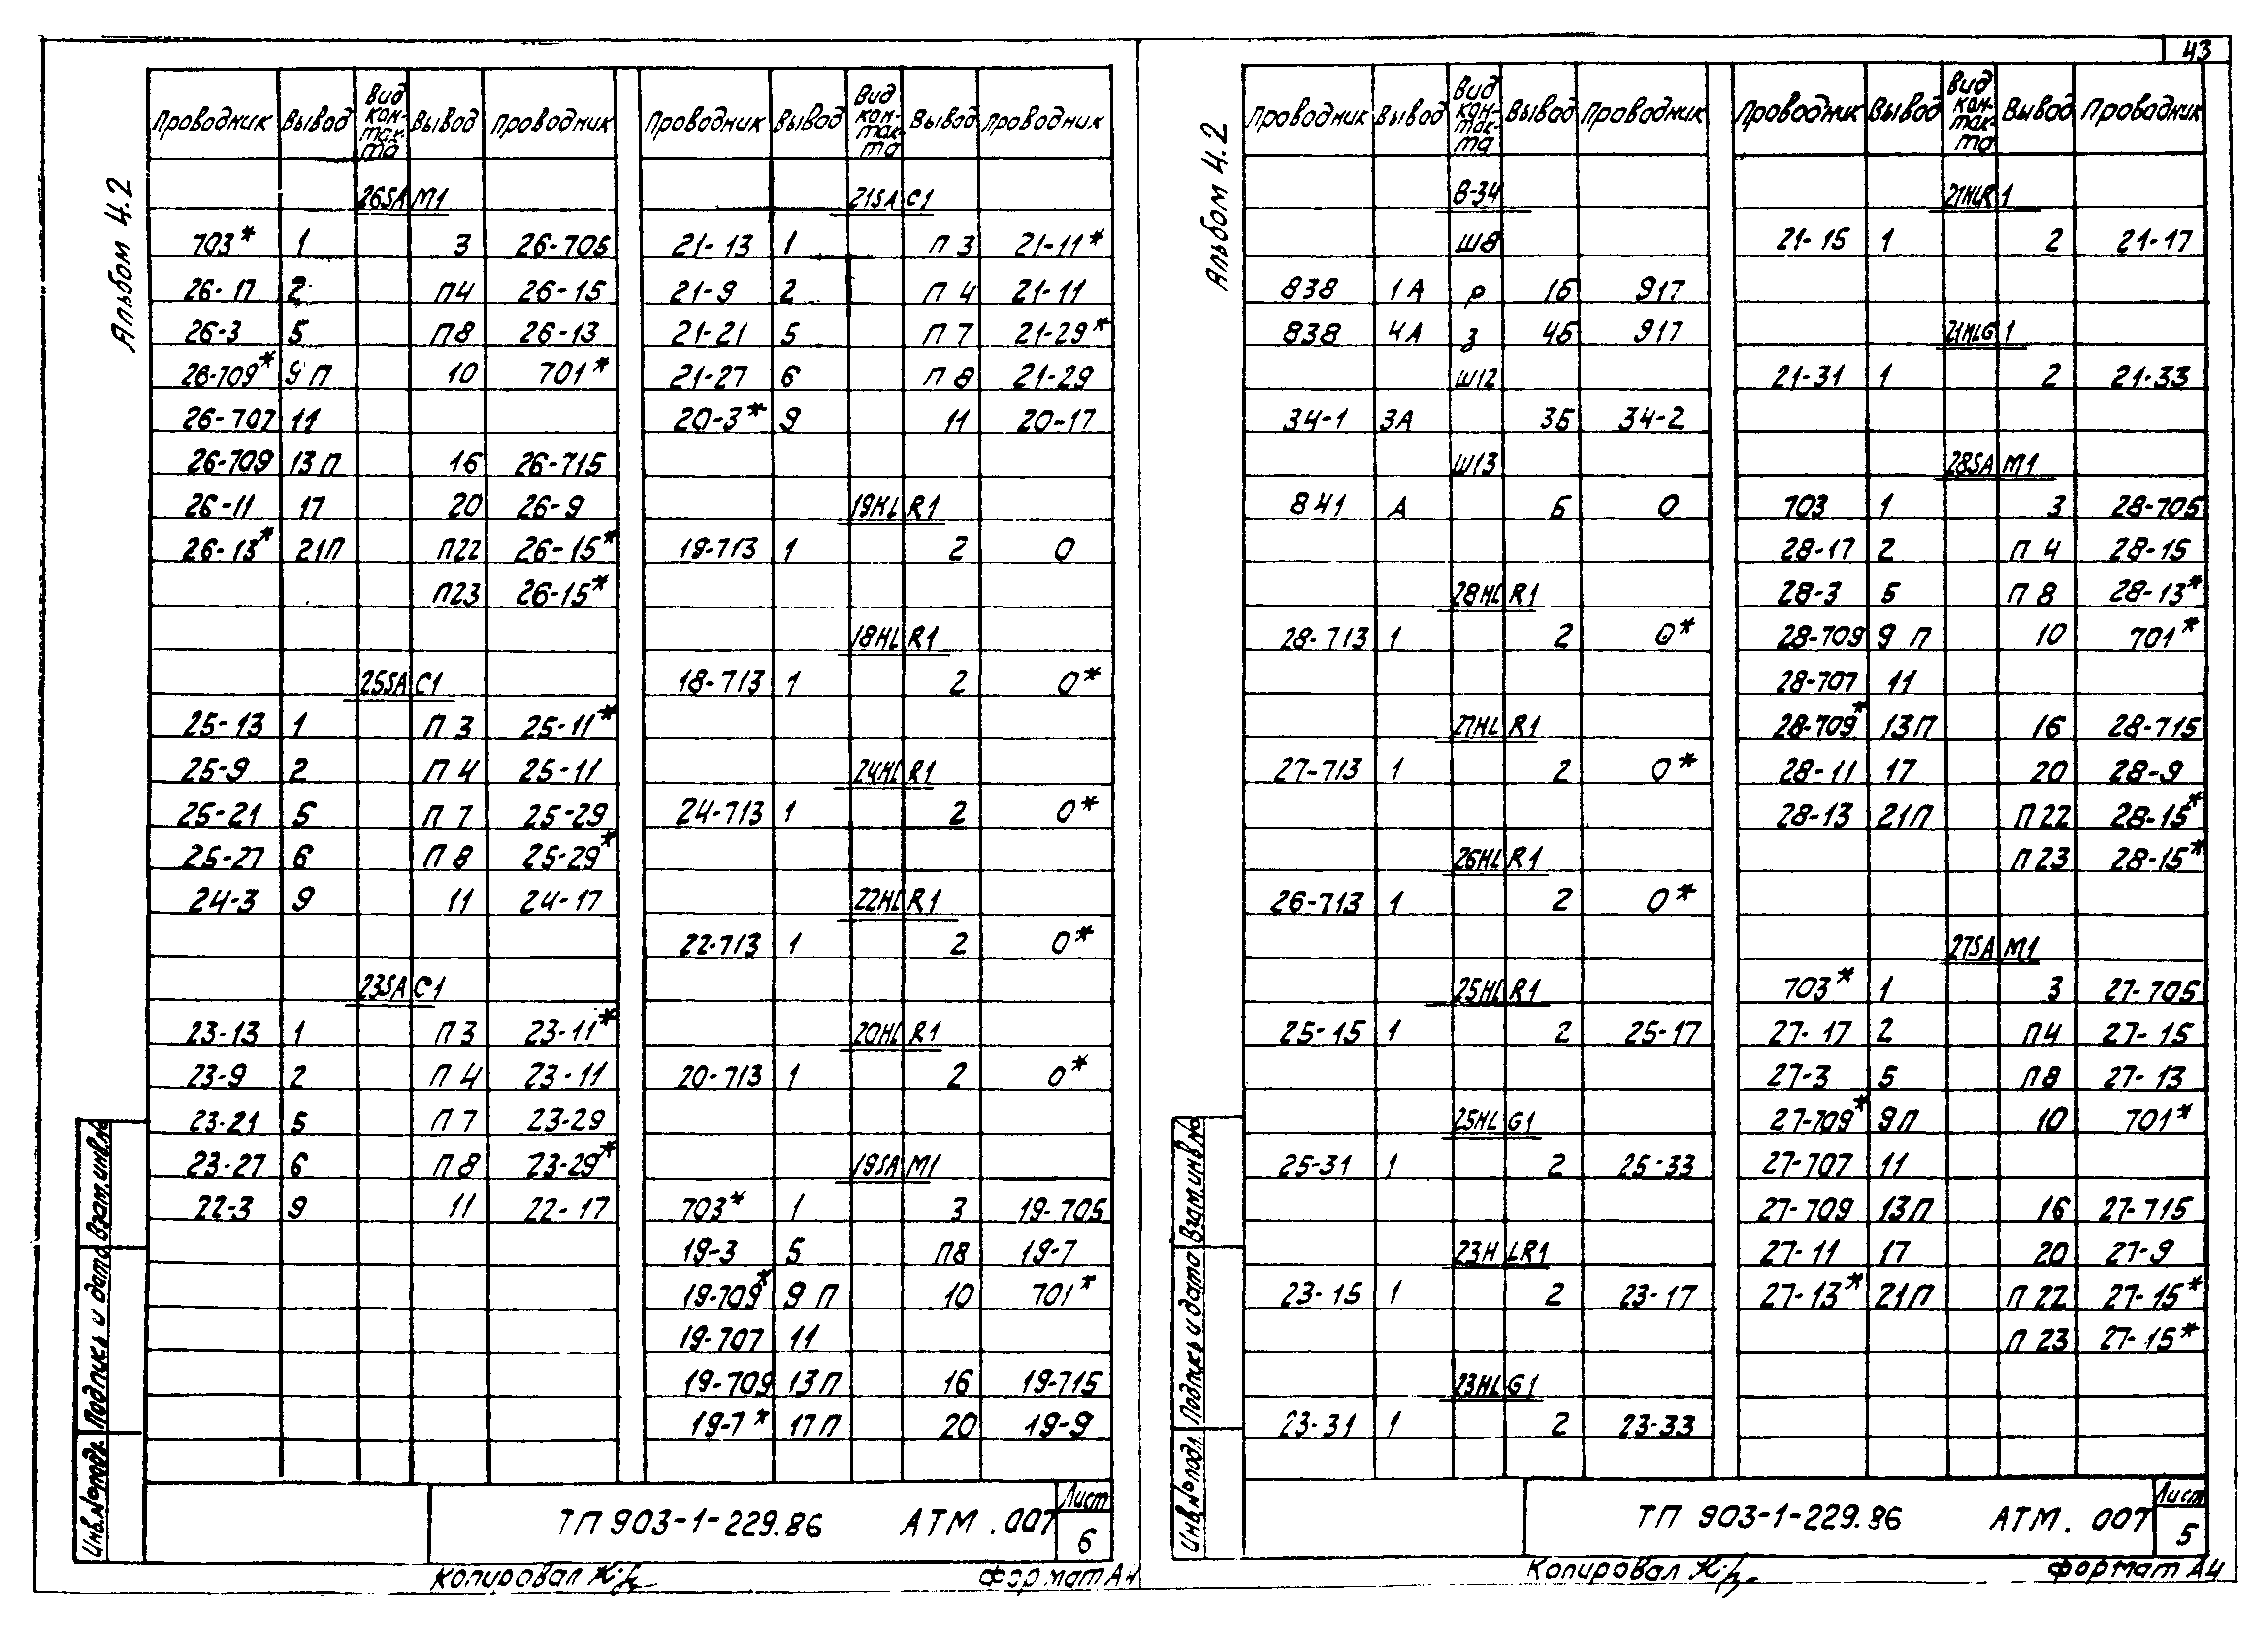 43
Альбом 4.2
Проводник Вывод Вид кон-так-та Вывод Проводник
26SA M1
703* 1 3 26-705
26-17 2 П4 26-15
26-3 5 П8 26-13
26-709* 9П 10 701*
26-707 11
26-709 13П 16 26-715
26-11 17 20 26-9
26-13* 21П П22 26-15*
П23 26-15*
25SA C1
25-13 1 П3 25-11*
25-9 2 П4 25-11
25-21 5 П7 25-29
25-27 6 П8 25-29*
24-3 9 11 24-17
23SA C1
23-13 1 П3 23-11*
23-9 2 П4 23-11
23-21 5 П7 23-29
23-27 6 П8 23-29*
22-3 9 11 22-17
Проводник Вывод Вид кон-так-та Вывод Проводник
21SA C1
21-13 1 П3 21-11*
21-9 2 П4 21-11
21-21 5 П7 21-29*
21-27 6 П8 21-29
20-3* 9 11 20-17
19HL R1
19-713 1 2 0
18HL R1
18-713 1 2 0*
24HL R1
24-713 1 2 0*
22HL R1
22-713 1 2 0*
20HL R1
20-713 1 2 0*
19SA M1
703* 1 3 19-705
19-3 5 П8 19-7
19-709* 9П 10 701*
19-707 11
19-709 13П 16 19-715
19-7* 17П 20 19-9
Инв.№ подл. Подпись и дата Взам.инв.№
ТП 903-1-229.86 АТМ.007 Лист
6
Копировал
Формат А4
Альбом 4.2
Проводник Вывод Вид кон-так-та Вывод Проводник
В-34
Ш8
838 1А Р 1Б 917
838 4А З 4Б 917
Ш12
34-1 3А 3Б 34-2
Ш13
841 А Б 0
28HL R1
28-713 1 2 0*
27HL R1
27-713 1 2 0*
26HL R1
26-713 1 2 0*
25HL R1
25-15 1 2 25-17
25HL G1
25-31 1 2 25-33
23HLR1
23-15 1 2 23-17
23HL G1
23-31 1 2 23-33
Проводник Вывод Вид кон-так-та Вывод Проводник
21HLR 1
21-15 1 2 21-17
21HLG 1
21-31 1 2 21-33
28SA M1
703 1 3 28-705
28-17 2 П4 28-15
28-3 5 П8 28-13*
28-709 9П 10 701*
28-707 11
28-709* 13П 16 28-715
28-11 17 20 28-9
28-13 21П П22 28-15*
П23 28-15*
27SA M1
703* 1 3 27-705
27-17 2 П4 27-15
27-3 5 П8 27-13
27-709* 9П 10 701*
27-707 11
27-709 13П 16 27-715
27-11 17 20 27-9
27-13* 21П П22 27-15*
П23 27-15*
Инв.№ подл. Подпись и дата Взам.инв.№
ТП 903-1-229.86 АТМ.007 Лист
5
Копировал
Формат А4